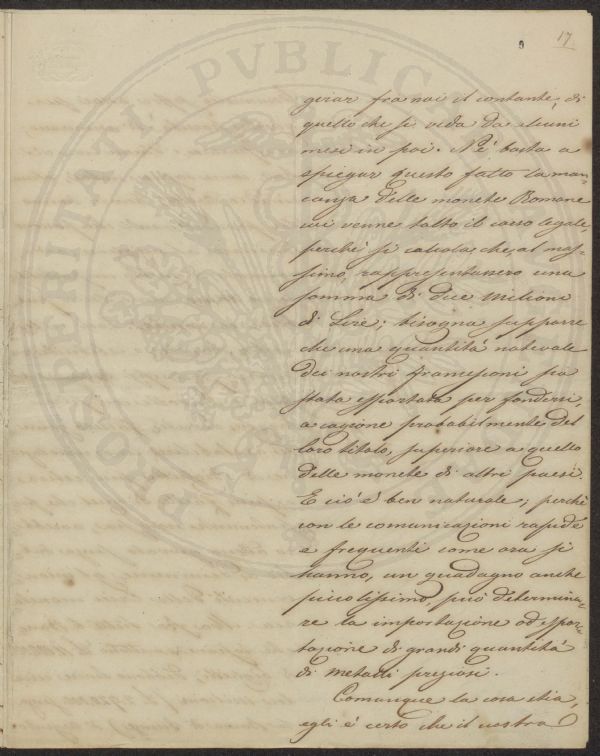 17
girar fra noi il contante, di
quello che si veda da alcuni
mesi in poi. Nè basta a
spiegar questo fatto la man-
canza delle monete Romane
cui venne tolto il corso legale,
perchè si calcola, che, al mas-
simo, rappresentassero una
somma di due Milioni
di Lire; bisogna supporre
che una quantità notevole
dei nostri francesconi sia
stata esportata per fondersi,
a cagione probabilmente del
loro titolo, superiore a quello
delle monete di altri paesi.
E ciò è ben naturale; perchè
con le comunicazioni rapide
e frequenti come ora si
hanno, un guadagno anche
piccolissimo, può determina-
re la importazione od espor-
tazione di grandi quantità
di metalli preziosi.
Comunque la cosa stia,
egli è certo che il nostro
PROSPERITATI PVBLIC